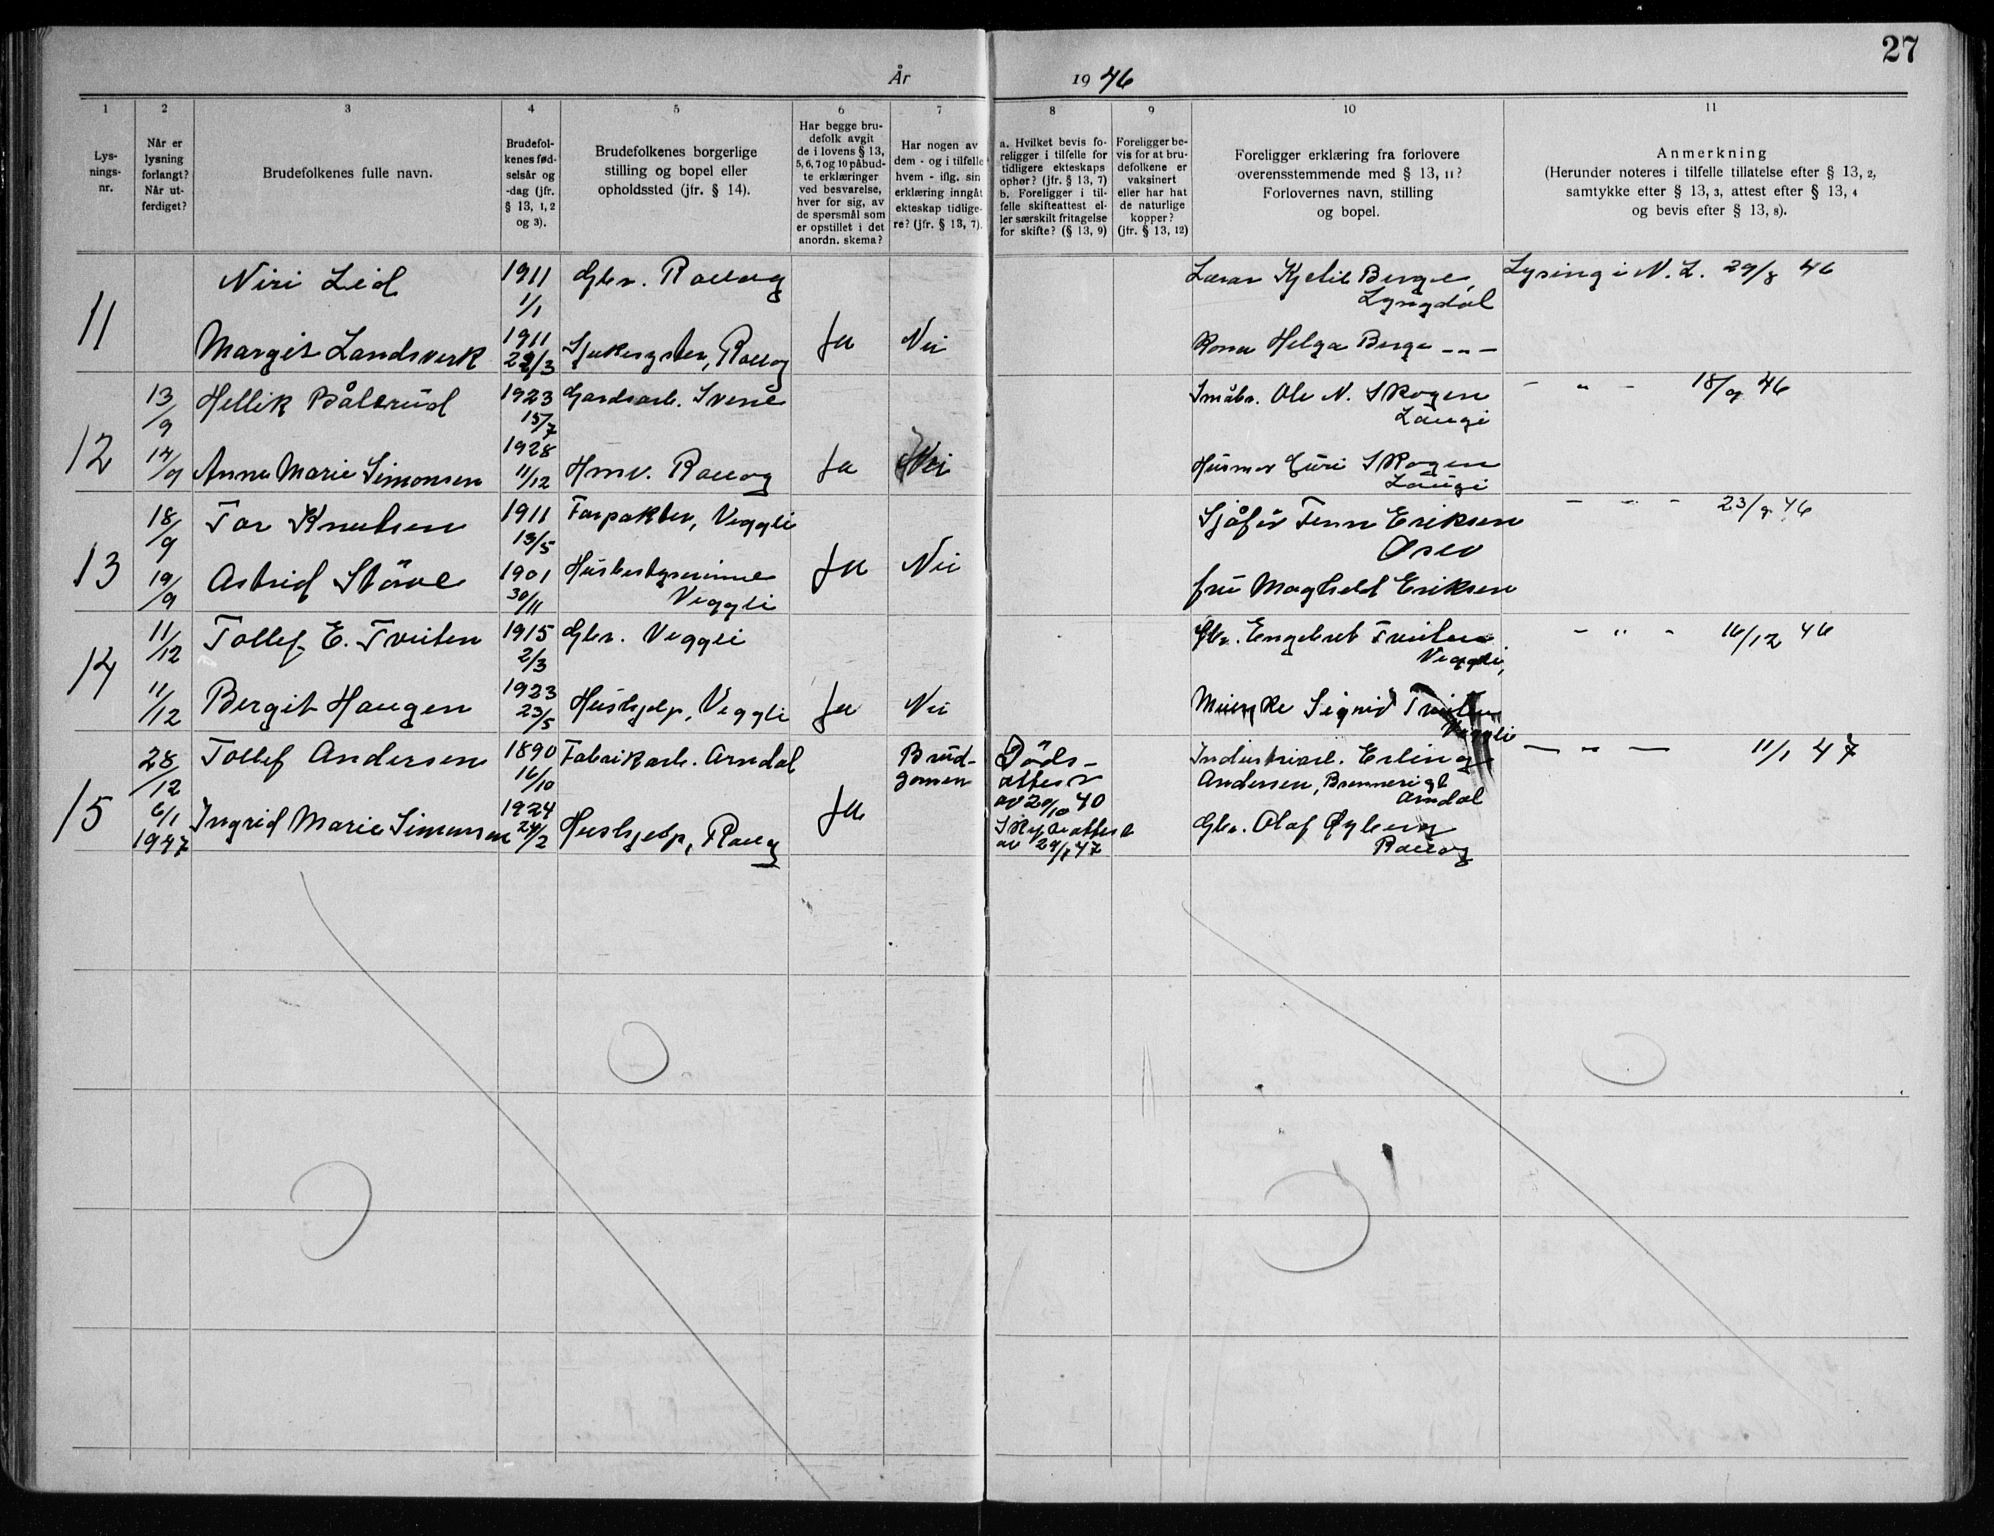 27
År 1946
1 2 3 4 5 6 7 8 9 10 11
Lys-
nings-
nr.
Når er
lysning
forlangt?
Når ut-
ferdiget?
Brudefolkenes fulle navn.
Brudefol-
kenes fød-
selsår og
-dag (jfr.
§ 13, 1, 2
og 3).
Brudefolkenes borgerlige
stilling og bopel eller
opholdssted (jfr. § 14).
Har begge bru-
defolk avgit
de i lovens § 13,
5, 6, 7 og 10 påbud-
te erklæringer
ved besvarelse,
hver for sig, av
de spørsmål som
er opstillet i det
anordn. skema?
Har nogen av
dem - og i tilfelle
hvem - iflg. sin
erklæring inngåt
ekteskap tidlige-
re? (jfr. § 13, 7).
a. Hvilket bevis fo-
religger i tilfelle for
tidligere ekteskaps
ophør? (jfr. § 13, 7)
b. Foreligger i til-
felle skifteattest el-
ler særskilt fritagelse
for skifte? (§ 13, 9)
Foreligger be-
vis for at bru-
defolkene er
vaksinert
eller har hat
de naturlige
kopper?
(jfr. § 13, 12)
Foreligger erklæring fra forlovere
overensstemmende med § 13, 11?
Forlovernes navn, stilling
og bopel.
Anmerkning
(Herunder noteres i tilfelle tillatelse efter § 13, 2,
samtykke efter § 13, 3, attest efter § 13, 4
og bevis efter § 13, 8).
11
Niri Leid 1911 Gbr. Rollag
1/1
Lærar Kjetil Berge,
Lyngdal
Lysing i N. L. 29/8 46
Margit Landsverk 1911
/3 Sjukesyster, Rollag Ja Nei
Kona Helga Berge - " -
12
13/9 Hellik Bålsrud 1923
15/7 Gardsarb. Svene
Småbr. Ole N. Skogen
Laugi
- " - 18/9 46
14/9 Anne Marie Simonsen 1928
11/12 Hmv. Rollag Ja Nei
Husmor Guri Skogen
Laugi
13
18/9 Tor Knutsen 1911
13/5 Forpakter, Veggli
Sjåfør Finn Eriksen
Oslo
- " - 23/9 46
19/9 Astrid Støve 1901
30/11 Husbestyrerinne
Veggli Ja Nei
fru Maghild Eriksen
14
11/12 Tollef E. Tveiten 1915
2/3 Gbr. Veggli
Gbr. Engebret Tveiten
Veggli,
- " - 16/12 46
11/12 Bergit Haugen 1923
23/5 Hushjelp, Veggli Ja Nei
Signid Tveiten
Veggli
15
28/12 Tollef Andersen 1890
16/10 Fabrikarb. Arndal
Brud-
gomen
Døds-
attest
av 20/10 40
Industriarb. Erling
Andersen, Brennerigt
Arndal
- " - 11/1 47
6/1
1947 Ingrid Marie Simonsen 1924
24/2 Hushjelp, Rollag Ja
Skifteattest
av
47
Gbr. Olaf Øyberg
Rollag